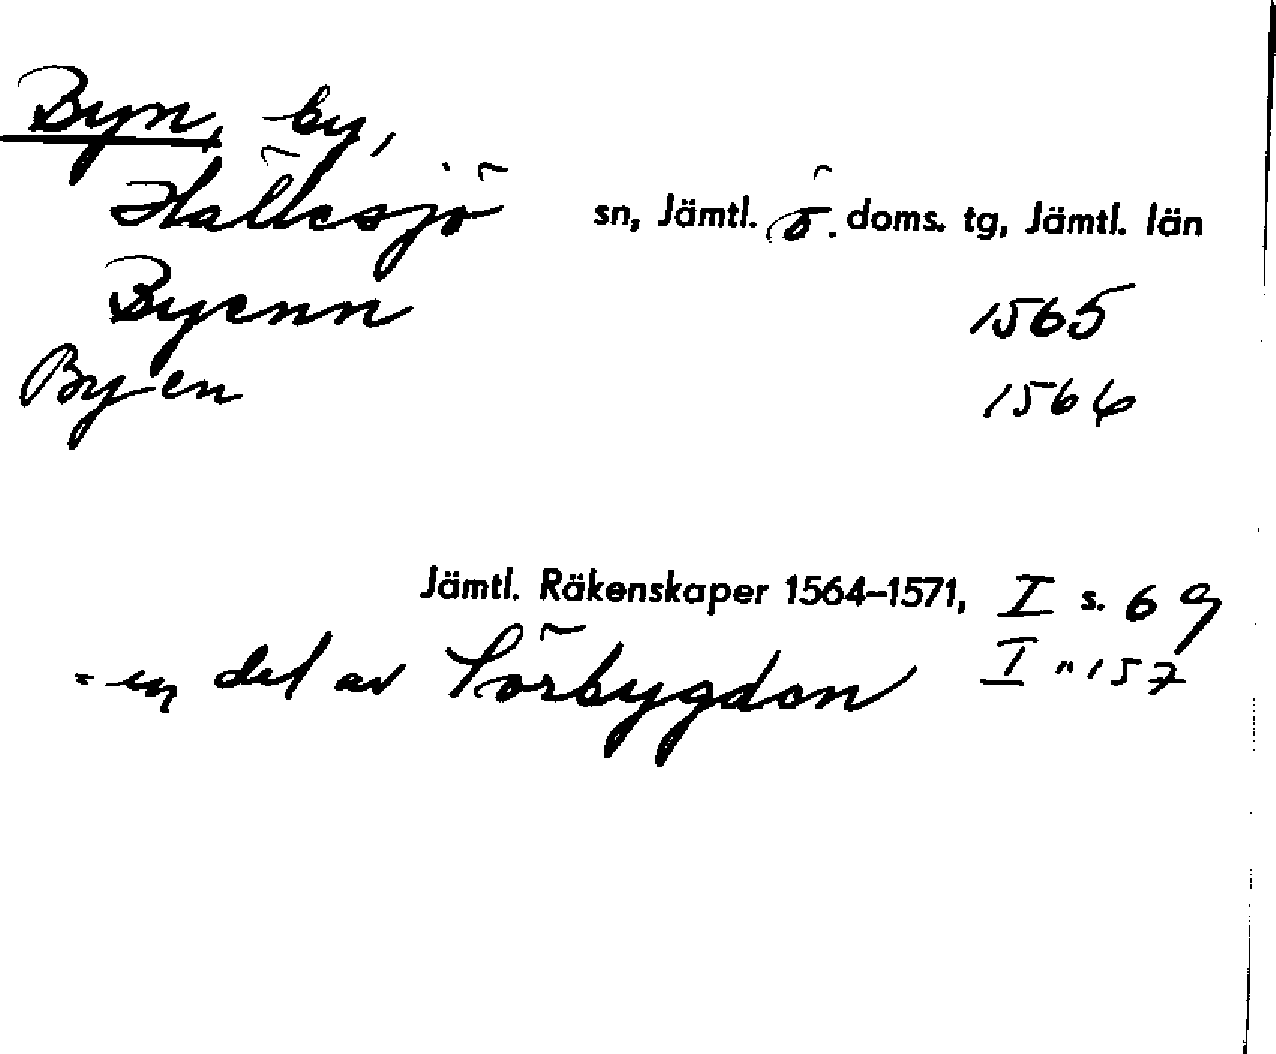 Byn, by,
Hällesjö sn, Jämtl. ö. doms. tg, Jämtl. län
Byenn 1565
Byen 1566
Jämtl. Räkenskaper 1564–1571, I s. 69
= en del av Sörbygdon I " 157